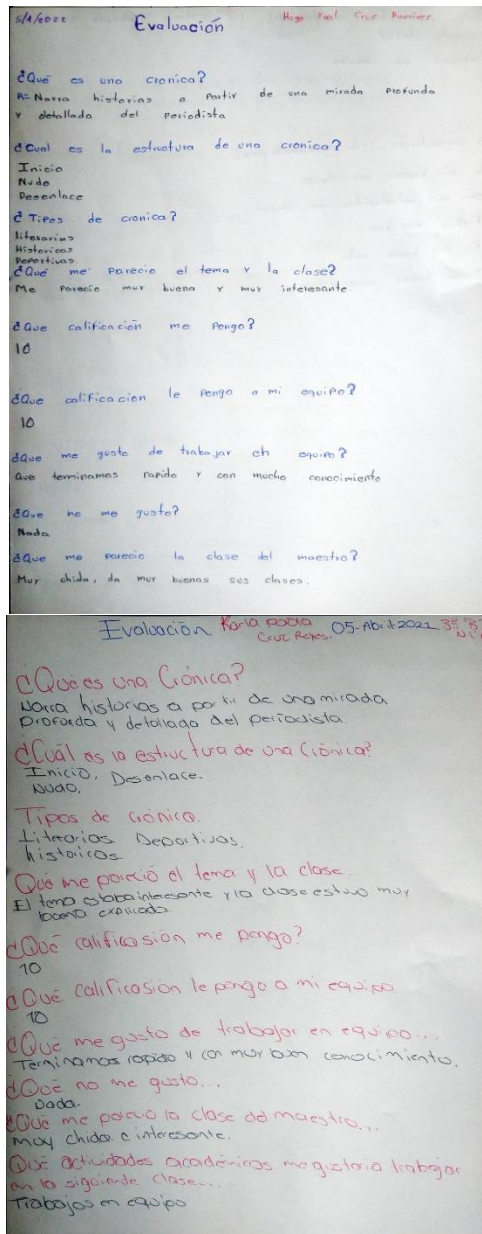 5/4/2022 Evaluación Hugo Yael Cruz Ramirez
¿Qué es una cronica?
R= Narra historias a partir de una mirada profunda
y detallada del periodista
¿Cual es la estructura de una cronica?
Inicio
Nudo
Desenlace
¿Tipos de cronica?
literarias
Historicas
Deportivas
¿Qué me parecio el tema y la clase?
Me parecio muy buena y muy interesante
¿Que calificación me pongo?
10
¿Que calificacion le pongo a mi equipo?
10
¿Que me gusto de trabajar en equipo?
Que terminamos rapido y con mucho conocimiento
¿Que no me gusto?
Nada
¿Que me parecio la clase del maestro?
Muy chida, da muy buenas sus clases.
Evaluación Karla Paola 05-Abril-2021
Cruz Reyes.
¿Qué es una Crónica?
Narra historias a partir de una mirada
profunda y detallada del periodista.
¿Cuál es la estructura de una Crónica?
Inicio, Desenlace.
Nudo,
Tipos de crónica.
Literarias Deportivas.
historicas
Qué me pareció el tema y la clase...
El tema estaba interesante y la clase estuvo muy
buena explicada.
¿Qué calificasión me pongo?
10
¿Qué calificasión le pongo a mi equipo
10
¿Qué me gusto de trabajar en equipo...
Terminamos rapido y con muy buen conocimiento.
¿Qué no me gusto...
Nada.
¿Qué me pareció la clase del maestro...
Muy chida e interesante.
Qué actividades académicas me gustaria trabajar
en la siguiente clase...
Trabajos en equipo